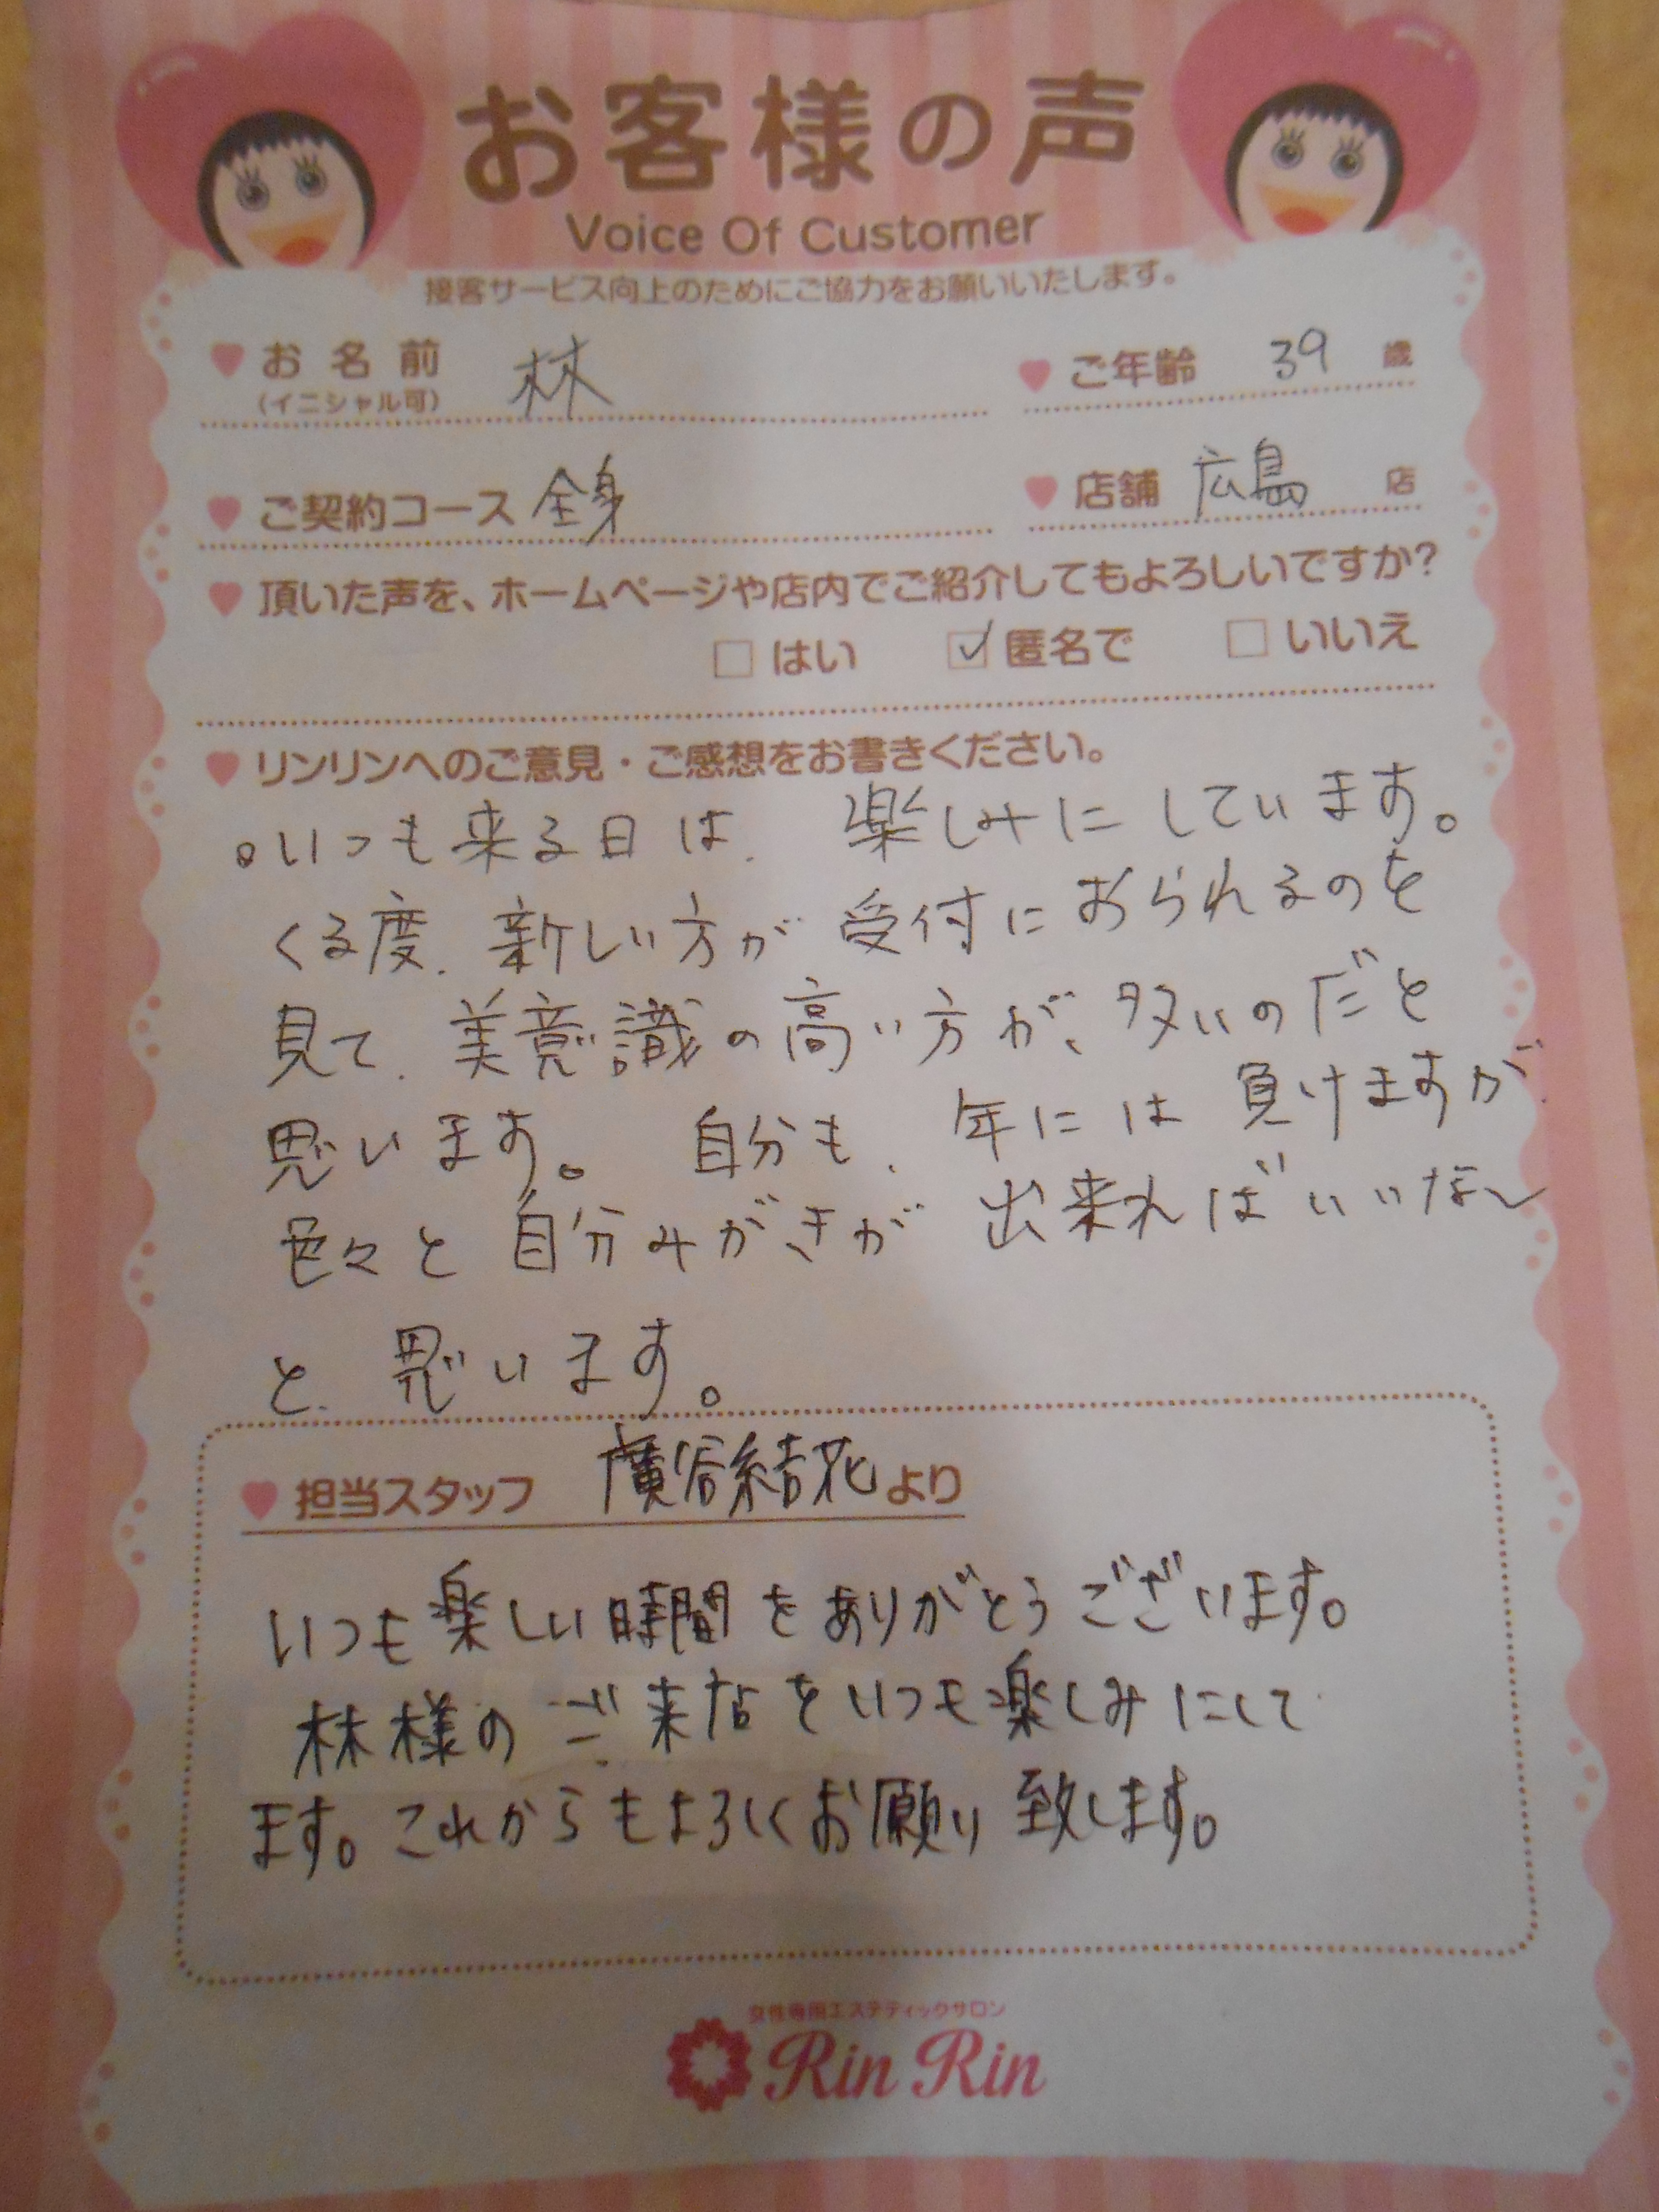 お客様の声
Voice Of Customer
接客サービス向上のためにご協力をお願いいたします。
お名前 林
(イニシャル可)
ご年齢 39 歳
ご契約コース 全身
店舗 広島 店
頂いた声を、ホームページや店内でご紹介してもよろしいですか?
はい 匿名で いいえ
リンリンへのご意見・ご感想をお書きください。
。いつも来る日は、楽しみにしています。
くる度、新しい方が受付におられるのを
見て、美意識の高い方が、多いのだと
思います。 自分も、年には負けますが、
色々と自分みがきが出来ればいいなー
と、思います。
担当スタッフ 廣谷結花より
いつも楽しい時間をありがとうございます。
林様のご来店をいつも楽しみにして
ます。これからもよろしくお願い致します。
女性専用エステティックサロン
Rin Rin